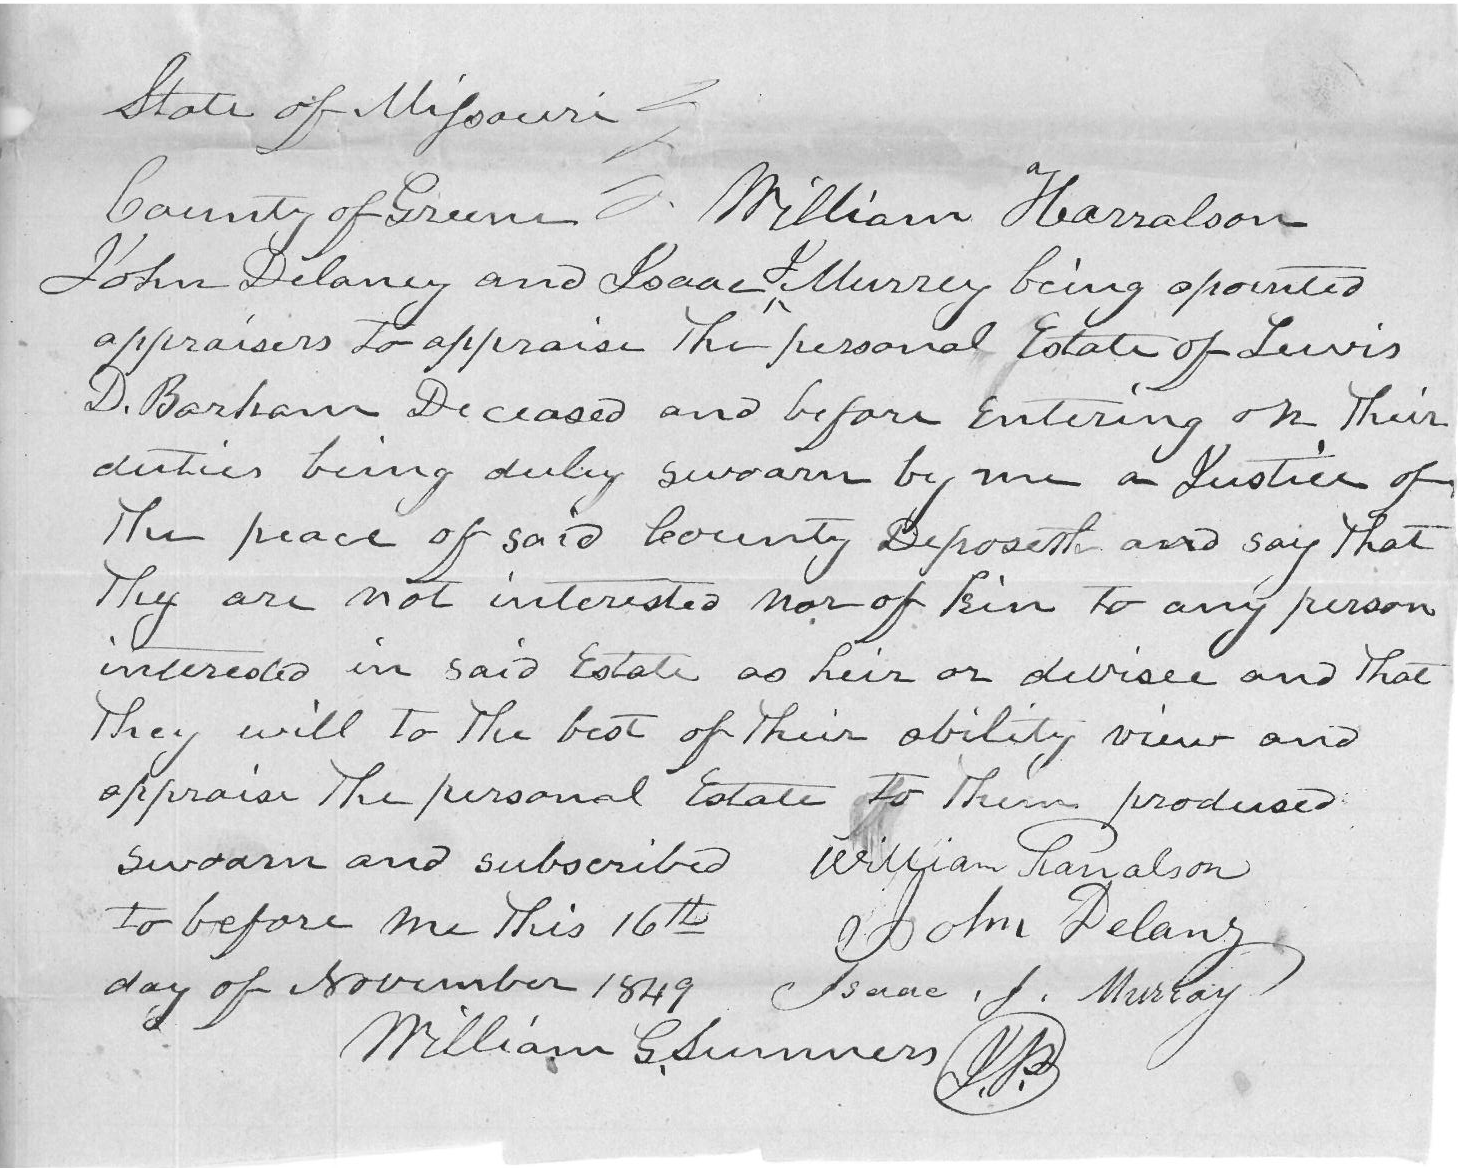 State of Missouri
County of Greene William Harralson
John Delaney and Isaac J. Murrey being apointed
appraisers to appraise the personal Estate of Lewis
D. Barham Deceased and before Entering on their
duties being duly swoarn by me a Justice of
the peace of said County Deposeth and say that
they are not interested nor of Kin to any person
interested in said Estate as heir or devisee and that
they will to the best of their ability view and
appraise the personal Estate to them prodused
swoarn and subscribed William Harralson
to before me this 16th John Delany
day of November 1849 Isaac . J . Murray
William G. Summers J.P.